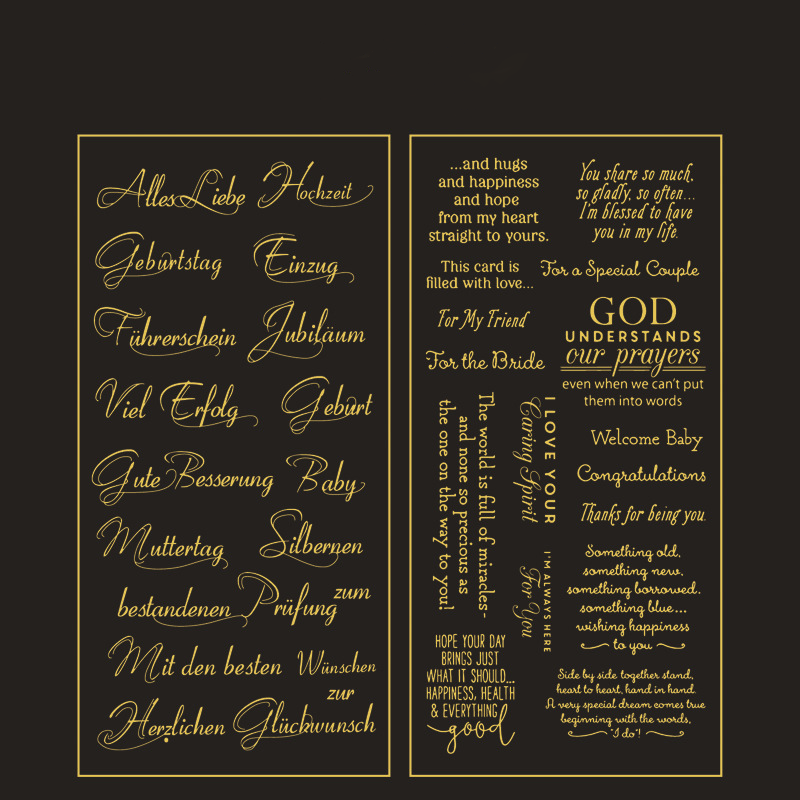 Alles Liebe
Hochzeit
Geburtstag
Einzug
Führerschein
Jubiläum
Viel Erfolg
Geburt
Gute Besserung
Baby
Muttertag
Silbernen
zum
bestandenen Prüfung
Mit den besten
Wünschen
zur
Herzlichen Glückwunsch
...and hugs
and happiness
and hope
from my heart
straight to yours.
You share so much,
so gladly, so often...
I'm blessed to have
you in my life.
This card is
filled with love...
For a Special Couple
For My Friend
GOD
UNDERSTANDS
our prayers
even when we can't put
them into words
For the Bride
The world is full of miracles-
and none so precious as
the one on the way to you!
I LOVE YOUR
Caring Spirit
Welcome Baby
Congratulations
Thanks for being you.
I'M ALWAYS HERE
For You
Something old,
something new,
something borrowed,
something blue...
wishing happiness
to you
HOPE YOUR DAY
BRINGS JUST
WHAT IT SHOULD...
HAPPINESS, HEALTH
& EVERYTHING
good
Side by side together stand,
heart to heart, hand in hand.
A very special dream comes true
beginning with the words,
"I do"!